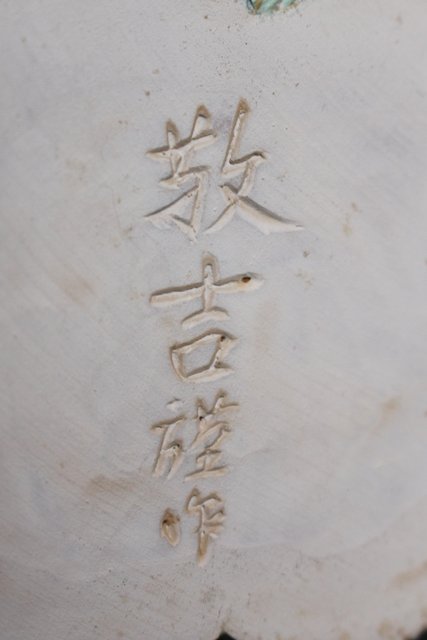 敬吉謹作